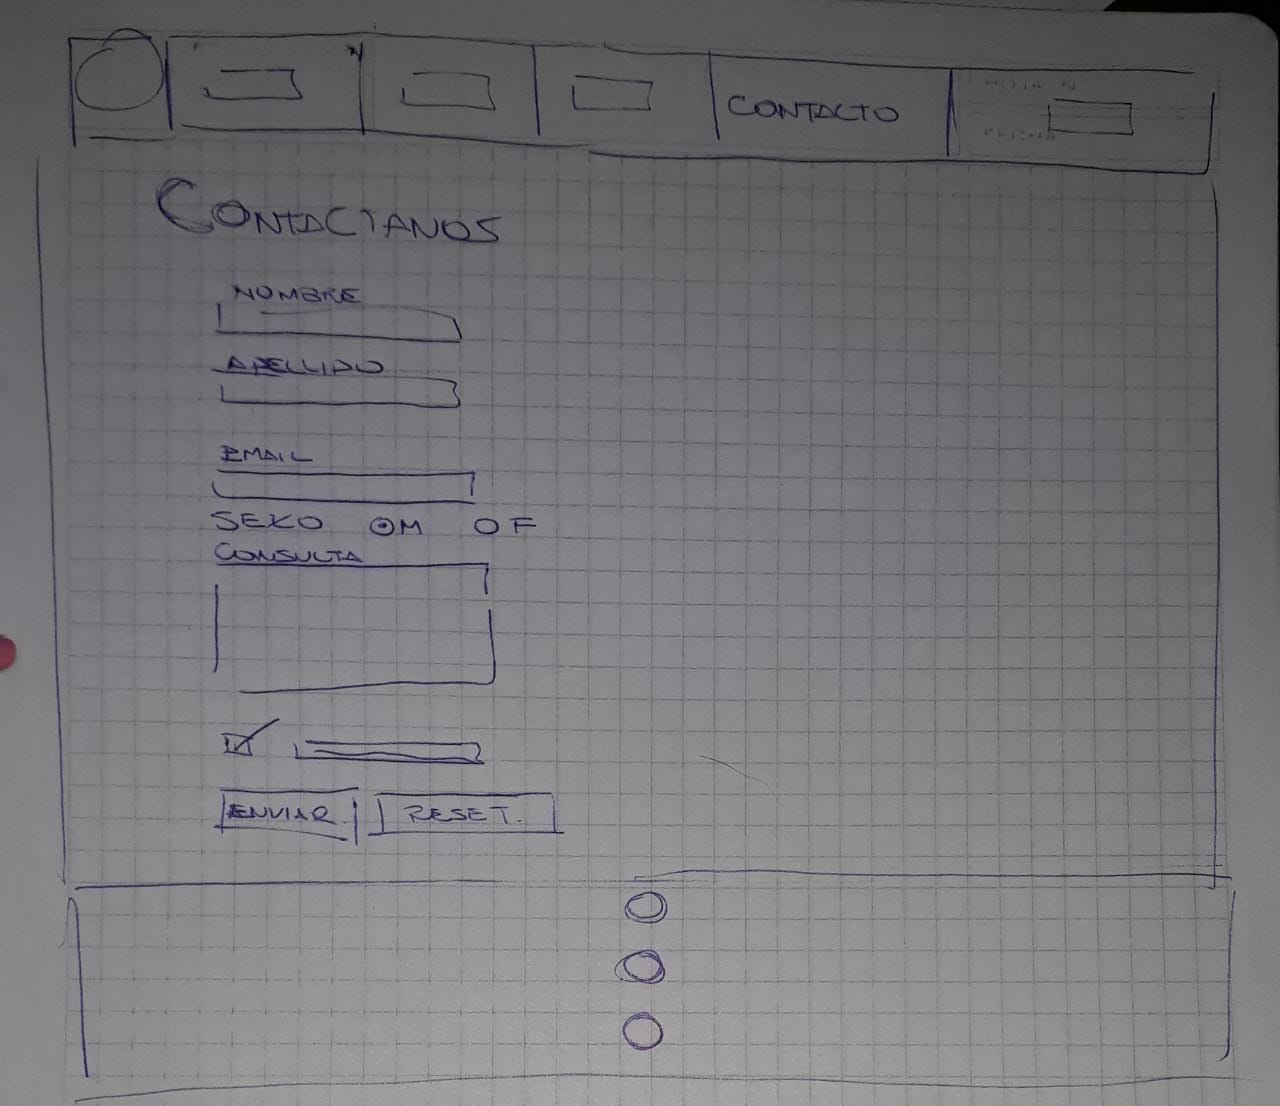 CONTACTO
HOJA N
FECHA
CONTACTANOS
NOMBRE
APELLIDO
EMAIL
SEXO M F
CONSULTA
ENVIAR RESET.